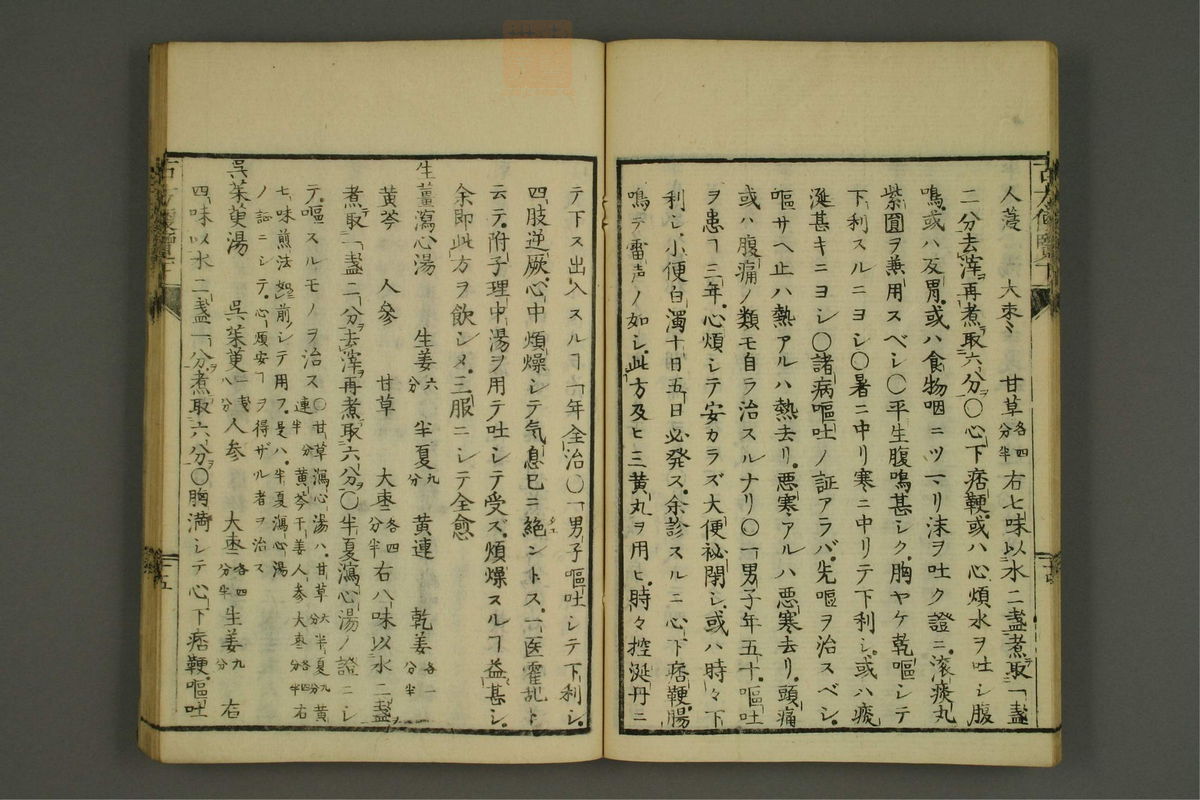 人薓 大棗ミ 甘草各四分半 右七味以水二盞煮取一盞
二分去滓再煮取六分〇心下痞鞕或ハ心煩水ヲ吐シ腹
鳴或ハ反胃或ハ食物咽ニツマリ沫ヲ吐ク證ニ滾痰丸
紫圓ヲ兼用スベシ〇平生腹鳴甚シク胸ヤケ乾嘔シテ
下利スルニヨシ〇暑ニ中リ寒ニ中リテ下利シ或ハ痰
涎甚キニヨシ〇諸病嘔吐ノ証アラバ先嘔ヲ治スベシ
嘔サヘ止ハ熱アルハ熱去リ悪寒アルハ悪寒去リ頭痛
或ハ腹痛ノ類モ自ラ治スルナリ〇一男子年五十嘔吐
ヲ患ヿ三年心煩シテ安カラズ大便祕閉シ或ハ時々下
利シ小便白濁十日五日必発ス余診スルニ心下痞鞕腸
鳴テ雷声ノ如シ此方及ヒ三黄丸ヲ用ヒ時々控涎丹ニ
テ下ス出入スルヿ一年全治〇一男子嘔吐シテ下利シ
四肢逆厥心中煩燥シテ気息已ニ絶ントス一医霍乱ト
云テ附子理中湯ヲ用テ吐シテ受ズ煩燥スルヿ益甚シ
余即此方ヲ飲シメ三服ニシテ全愈
生薑瀉心湯 生姜六分 半夏九分 黄連 乾姜各一分半
黄芩 人參 甘草 大棗各四分半 右八味以水二盞
煮取一盞二分去滓再煮取六分〇半夏瀉心湯ノ證ニシ
テ嘔スルモノヲ治ス〇甘草瀉心湯ハ甘草六分半夏九分黄
連半分黄芩干姜人参大棗各四分半右
七味煎法如前シテ用フ是ハ半夏瀉心湯
ノ証ニシテ心煩安ヿヲ得ザル者ヲ治ス
呉茱萸湯 呉茱萸一戔八分 人參 大棗各四分半 生姜九分 右
四味以水二盞一分煮取六分〇胸満シテ心下痞鞕嘔吐